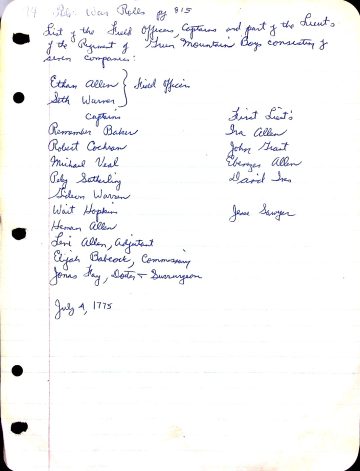 War Rolls pg 815
List of the Field Officers, Captains and part of the Lieut's
of the Regiment of Green Mountain Boys consisting of
seven companies:
Ethan Allen } Field Officers
Seth Warner
Captains First Lieut's
Remember Baker Ira Allen
Robert Cochran John Grant
Michael Veal Ebenezer Allen
Peleg Sutherling David Ives
Gideon Warren
Wait Hopkins Jesse Sawyer
Heman Allen
Levi Allen, Adjutant
Elijah Babcock, Commissary
Jonas Fay, Doctor & Surrurgeon
July 4, 1775